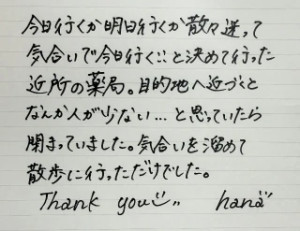 今日行くか明日行くか散々迷って
気合いで今日行く!!と決めて行った
近所の薬局。目的地へ近づくと
なんか人が少ない…と思っていたら
閉まっていました。気合いを溜めて
散歩に行っただけでした。
Thank you hana